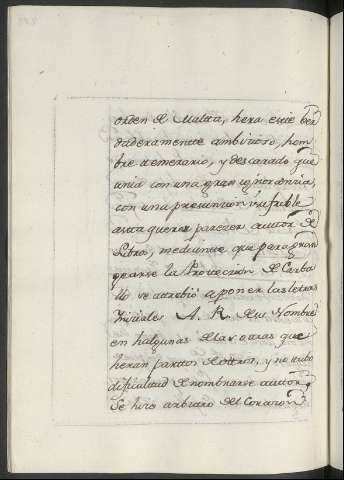 orden de Malta, hera este ber
daderamente ambicioso, hom
bre temerario, y descarado que
unia con una gran ignorancia,
con una presuncion insufrible
asta querer parecer autor de
Libros, mediante que para gran
gearse la Proteccion de Carba
llo se atrebió a poner las letras
Iniciales A. R. de su Nombre
en halgunas de las otras que
heran partos de otros, y no tubo
dificultad de nombrarse autor,
Se hizo arbitro del Corazon